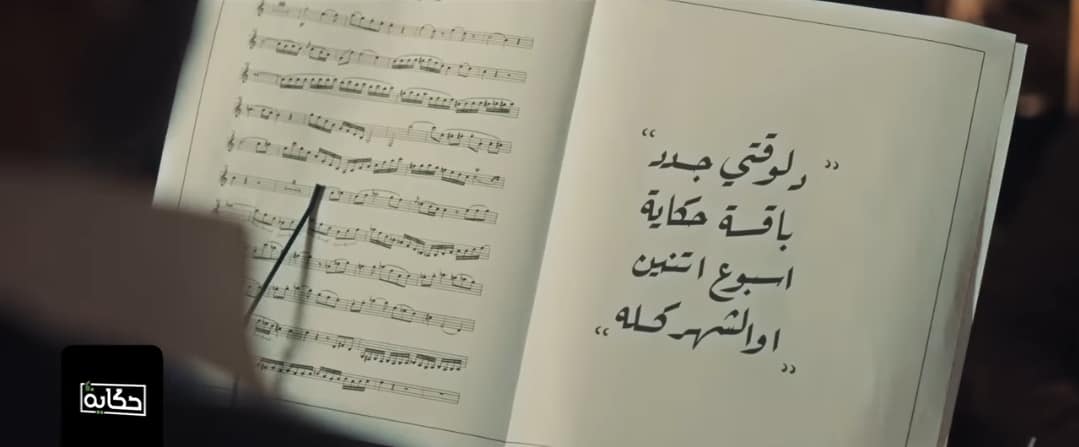 ” دلوقتي جدد “
باقة حكاية
اسبوع اتنين
“ اوالشهر كله ”
حكاية